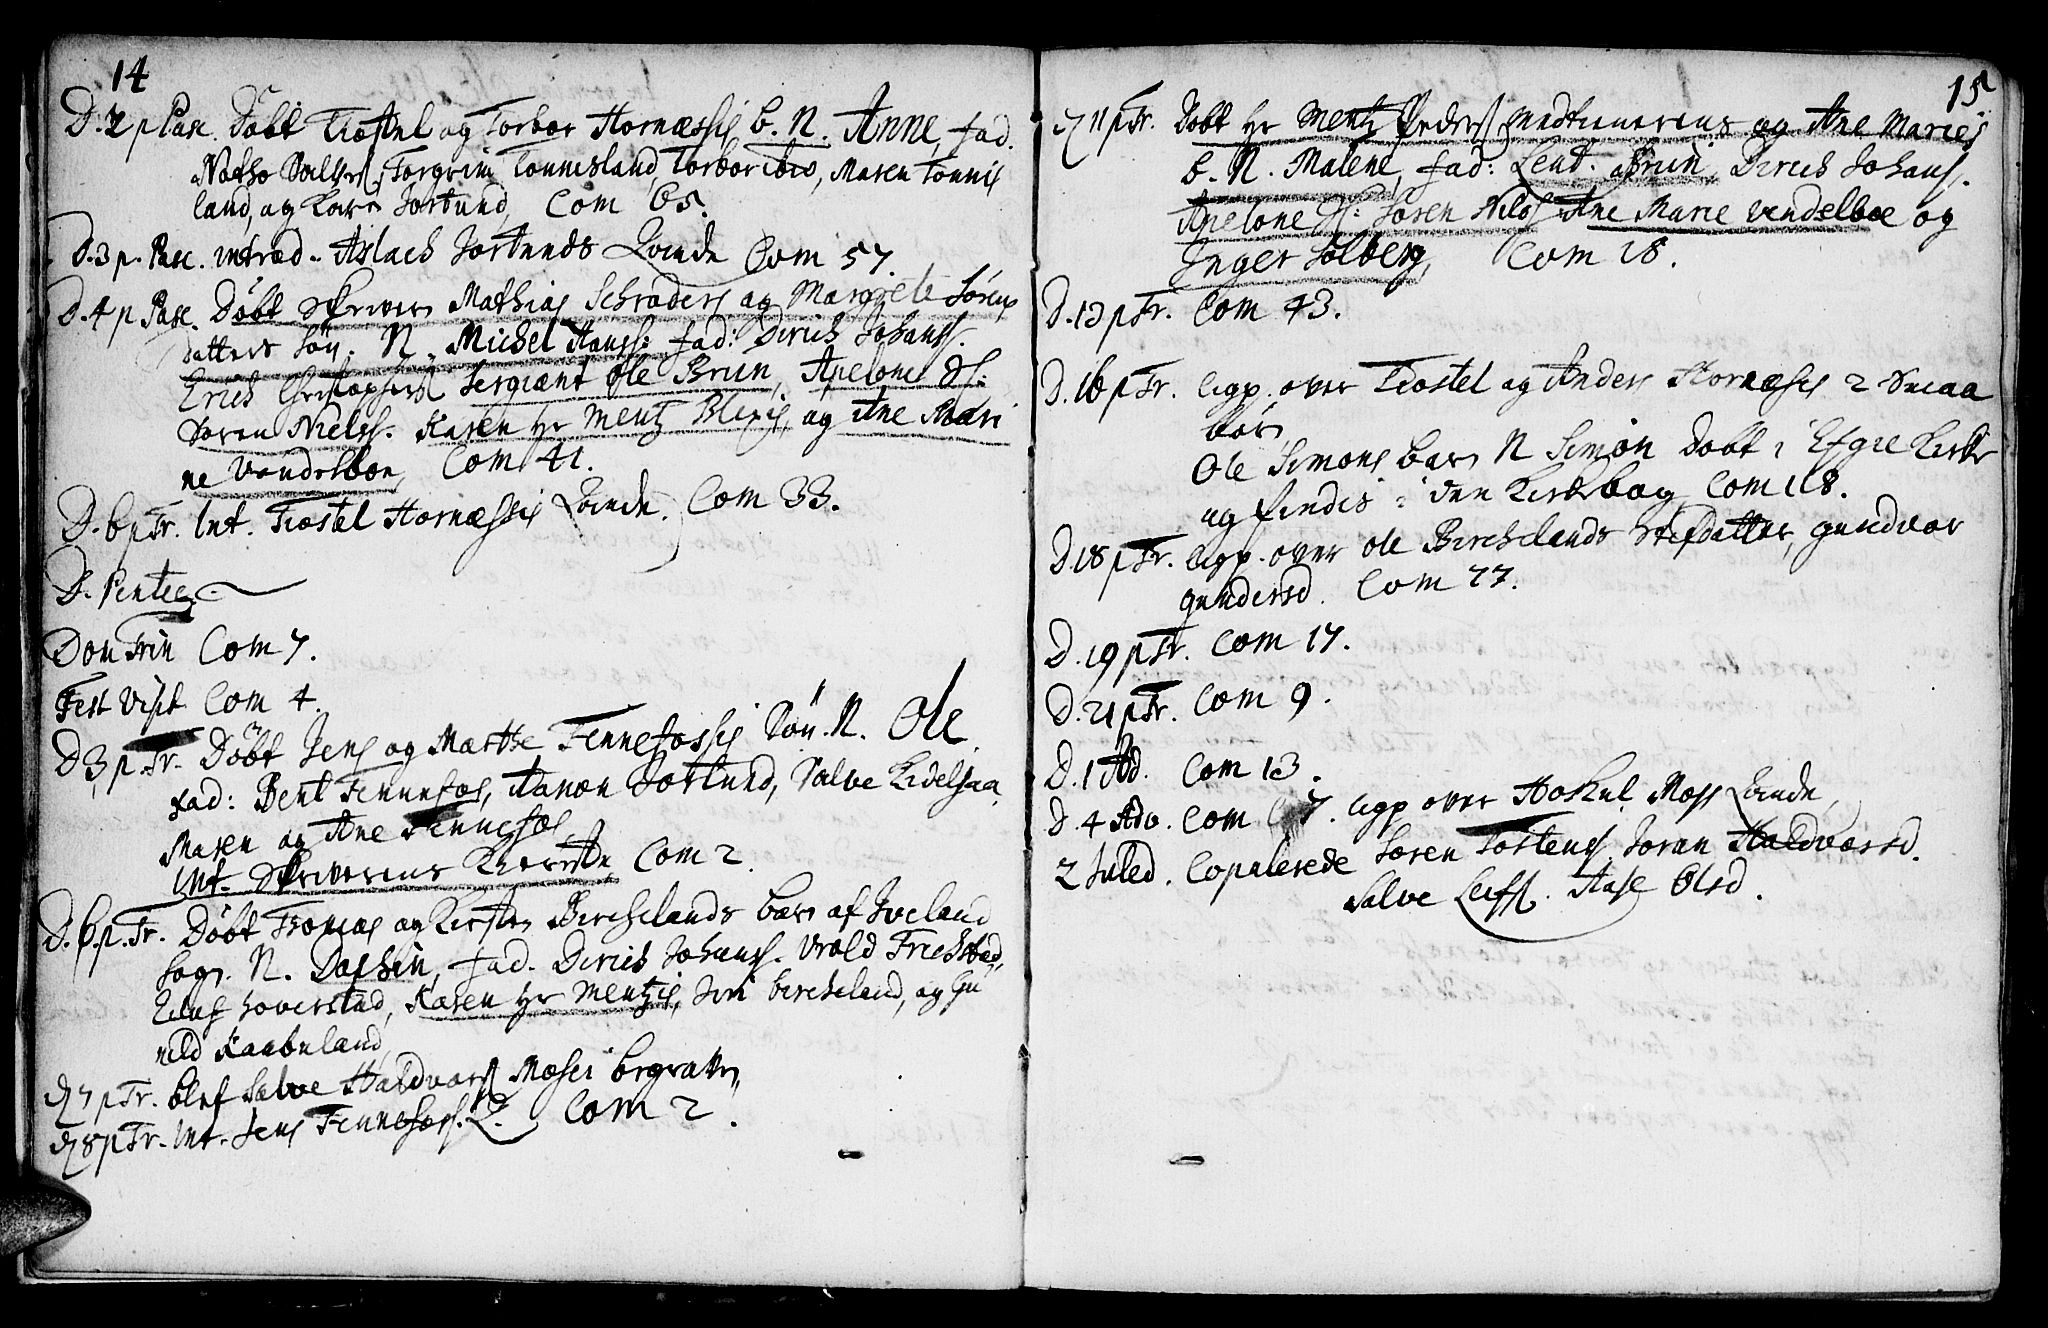 14
D. 2 p Pasc. Døbt Tostel og Torbor Hornæssis b. N. Anne, fad.
Torgrim Tonnesland, Torbor ibid, Maren Tonnis
land, og Karn Jortund, Com 65.
D. 3 p. Pasc. introd. Aslach Jortunds Qvinde Com 57.
D. 4 p Pasc. Døbt Skriver Mathias Schrøders og Margrete Sørens
datters Søn. N. Michel Hans: fad: Dirich Johans.
Erich Christophers Sergiant Ole Brun, Apelone Sl:
Søren Niels. Karen Hr Mentz og Ane Mari
ne Vendelboe, Com 41.
D. 6 p Tr. Int. Tostel Hornæssis Qvinde. Com 33.
D. Pentec.
Dom Trin Com 7.
Fest Visit Com 4.
D 3, p. Tr. Døbt Jens og Marthe Fennefossis Søn. N. Ole
fad: Bent Fennefos, Aanon Jortund, Salve Kidelsaa,
Maren og Ane Fennefos.
Int. Skriverens Kierste, Com 2.
D. 6. p. Tr. Døbt Tomas og Kirsten Birchelands barn af Iveland
sogn. N. Dorthin, fad. Dirich Johans. Vrold Friestad,
Hoverstad, Karen Hr Mentzis, Siri Bircheland, og Gu
nild Kaabuland,
D 7 p Tr. blef Salve Haldvors Mosei begraven,
D 8 p Tr. Int. Jens Fennefoss. Q. Com 2.
15
D 11 p Tr. Døbt Hr Mentz Peders og Ane Maries
b. N. Malene, fad: Leut. Brun, Dirich Johans.
Apelone Sl: Søren Nils Ane Marie Vendelboe og
Inger Solberg, Com 18.
D. 13 p Tr. Com 43.
D. 16 p Tr. ligp. over Tostel og Anders Hornæssis 2 Smaa
børn
Ole Simons barn N Simon Døbt i Efgie Kirke
og findis i den Kirkebog Com 118.
D. 18 p Tr. ligp. over Ole Birchelands Stifdatter, gundvor
gundersd. Com 77.
D. 19 p Tr. Com 17.
D. 21 p Tr. Com 9.
D. 1 Ad. Com 13.
D. 4 Adv. Com 7. ligp over Aaskul Moss Qvinde,
2 Juled. Copulerede Søren Tostens. Joran Haldvorsd.
Salve Leifs. Aase Olsd.